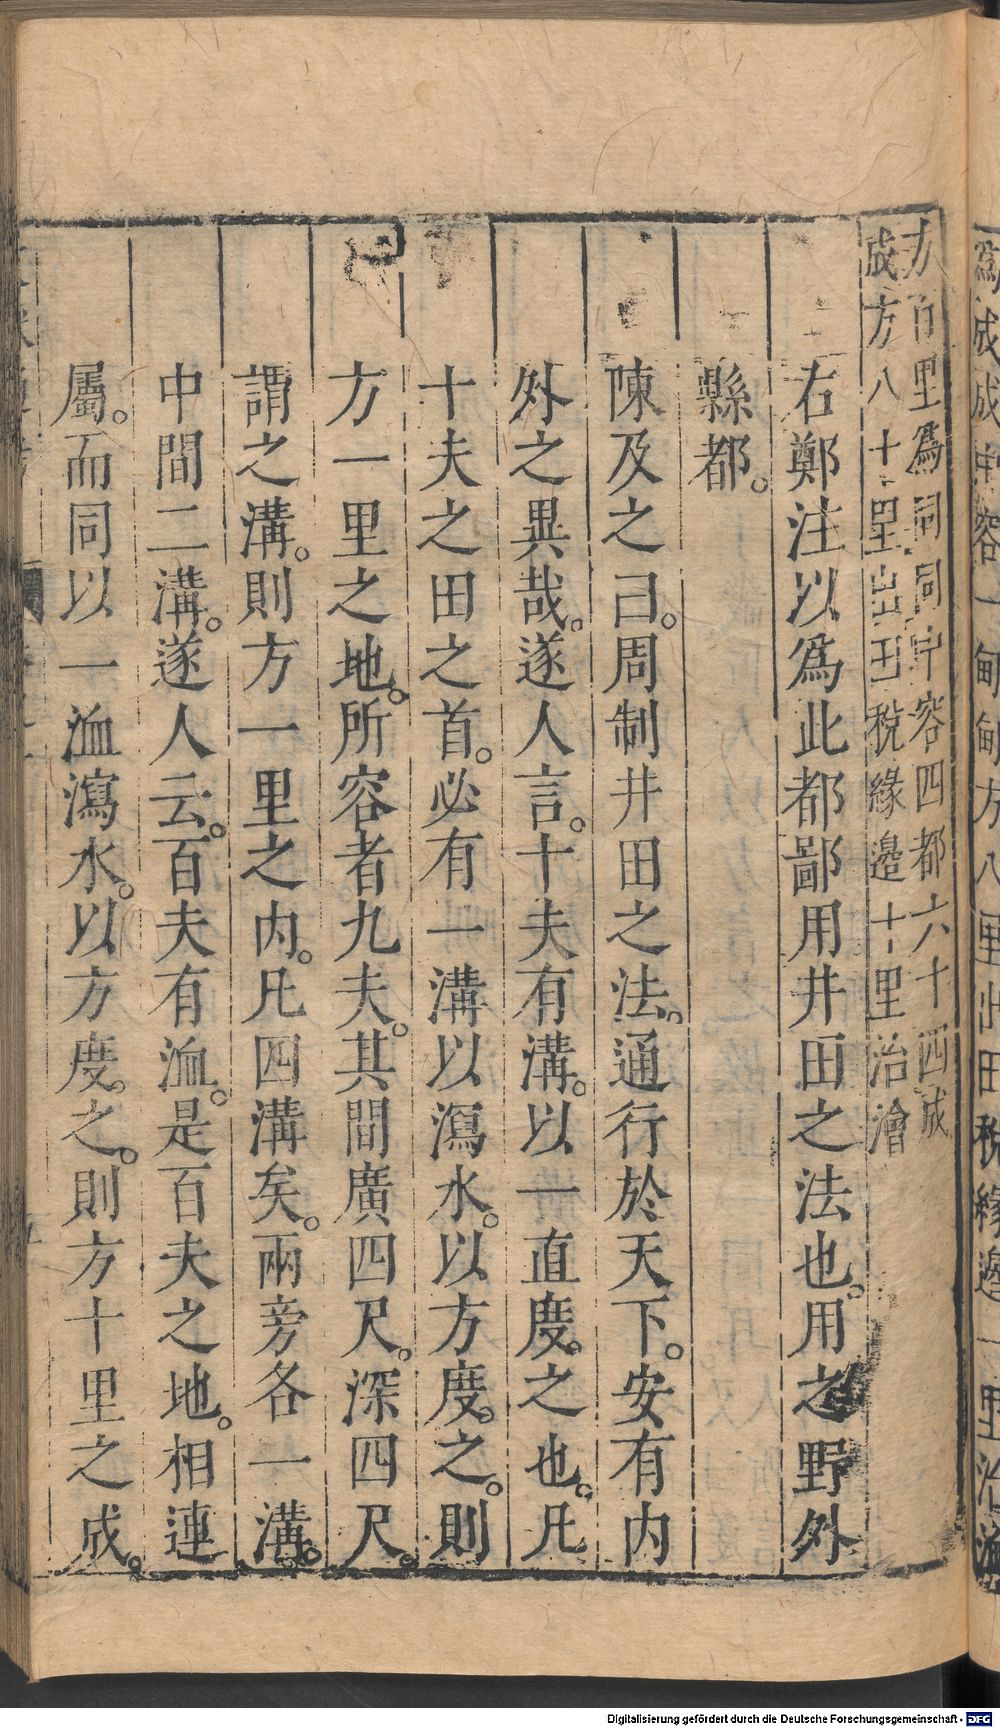 爲成成中容一甸甸方八里出田稅緣邊一里治洫
方百里爲同同中容四都六十四成
成方八十里出田稅緣邊十里治澮
右鄭注以爲此都鄙用井田之法也。用之野外
縣都。
陳及之曰。周制井田之法。通行於天下。安有内
外之異哉。遂人言。十夫有溝。以一直度。之也。凡
十夫之田之首。必有一溝以瀉水。以方度。之。則
方一里之地。所容者九夫。其間廣四尺。深四尺。
謂之溝。則方一里之内。凡四溝矣。兩旁各一溝。
中間二溝。遂人云。百夫有洫。是百夫之地。相連
屬。而同以一洫瀉水。以方度。之。則方十里之成。
Digitalisierung gefördert durch die Deutsche Forschungsgemeinschaft - DFG